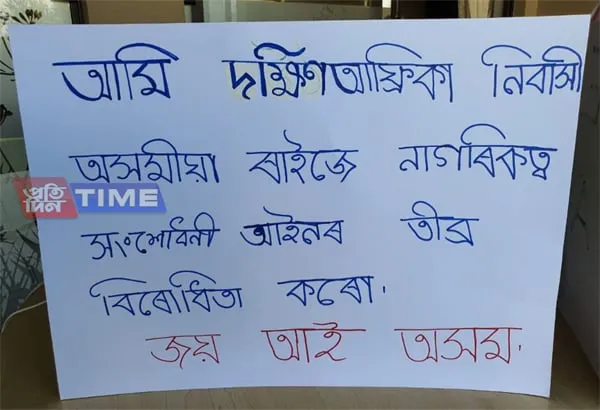 আমি দক্ষিণ আফ্ৰিকা নিবাসী
অসমীয়া ৰাইজে নাগৰিকত্ব
প্ৰতিদিন TIME
সংশোধনী আইনৰ তীব্ৰ
বিৰোধিতা কৰো.
জয় আই অসম.